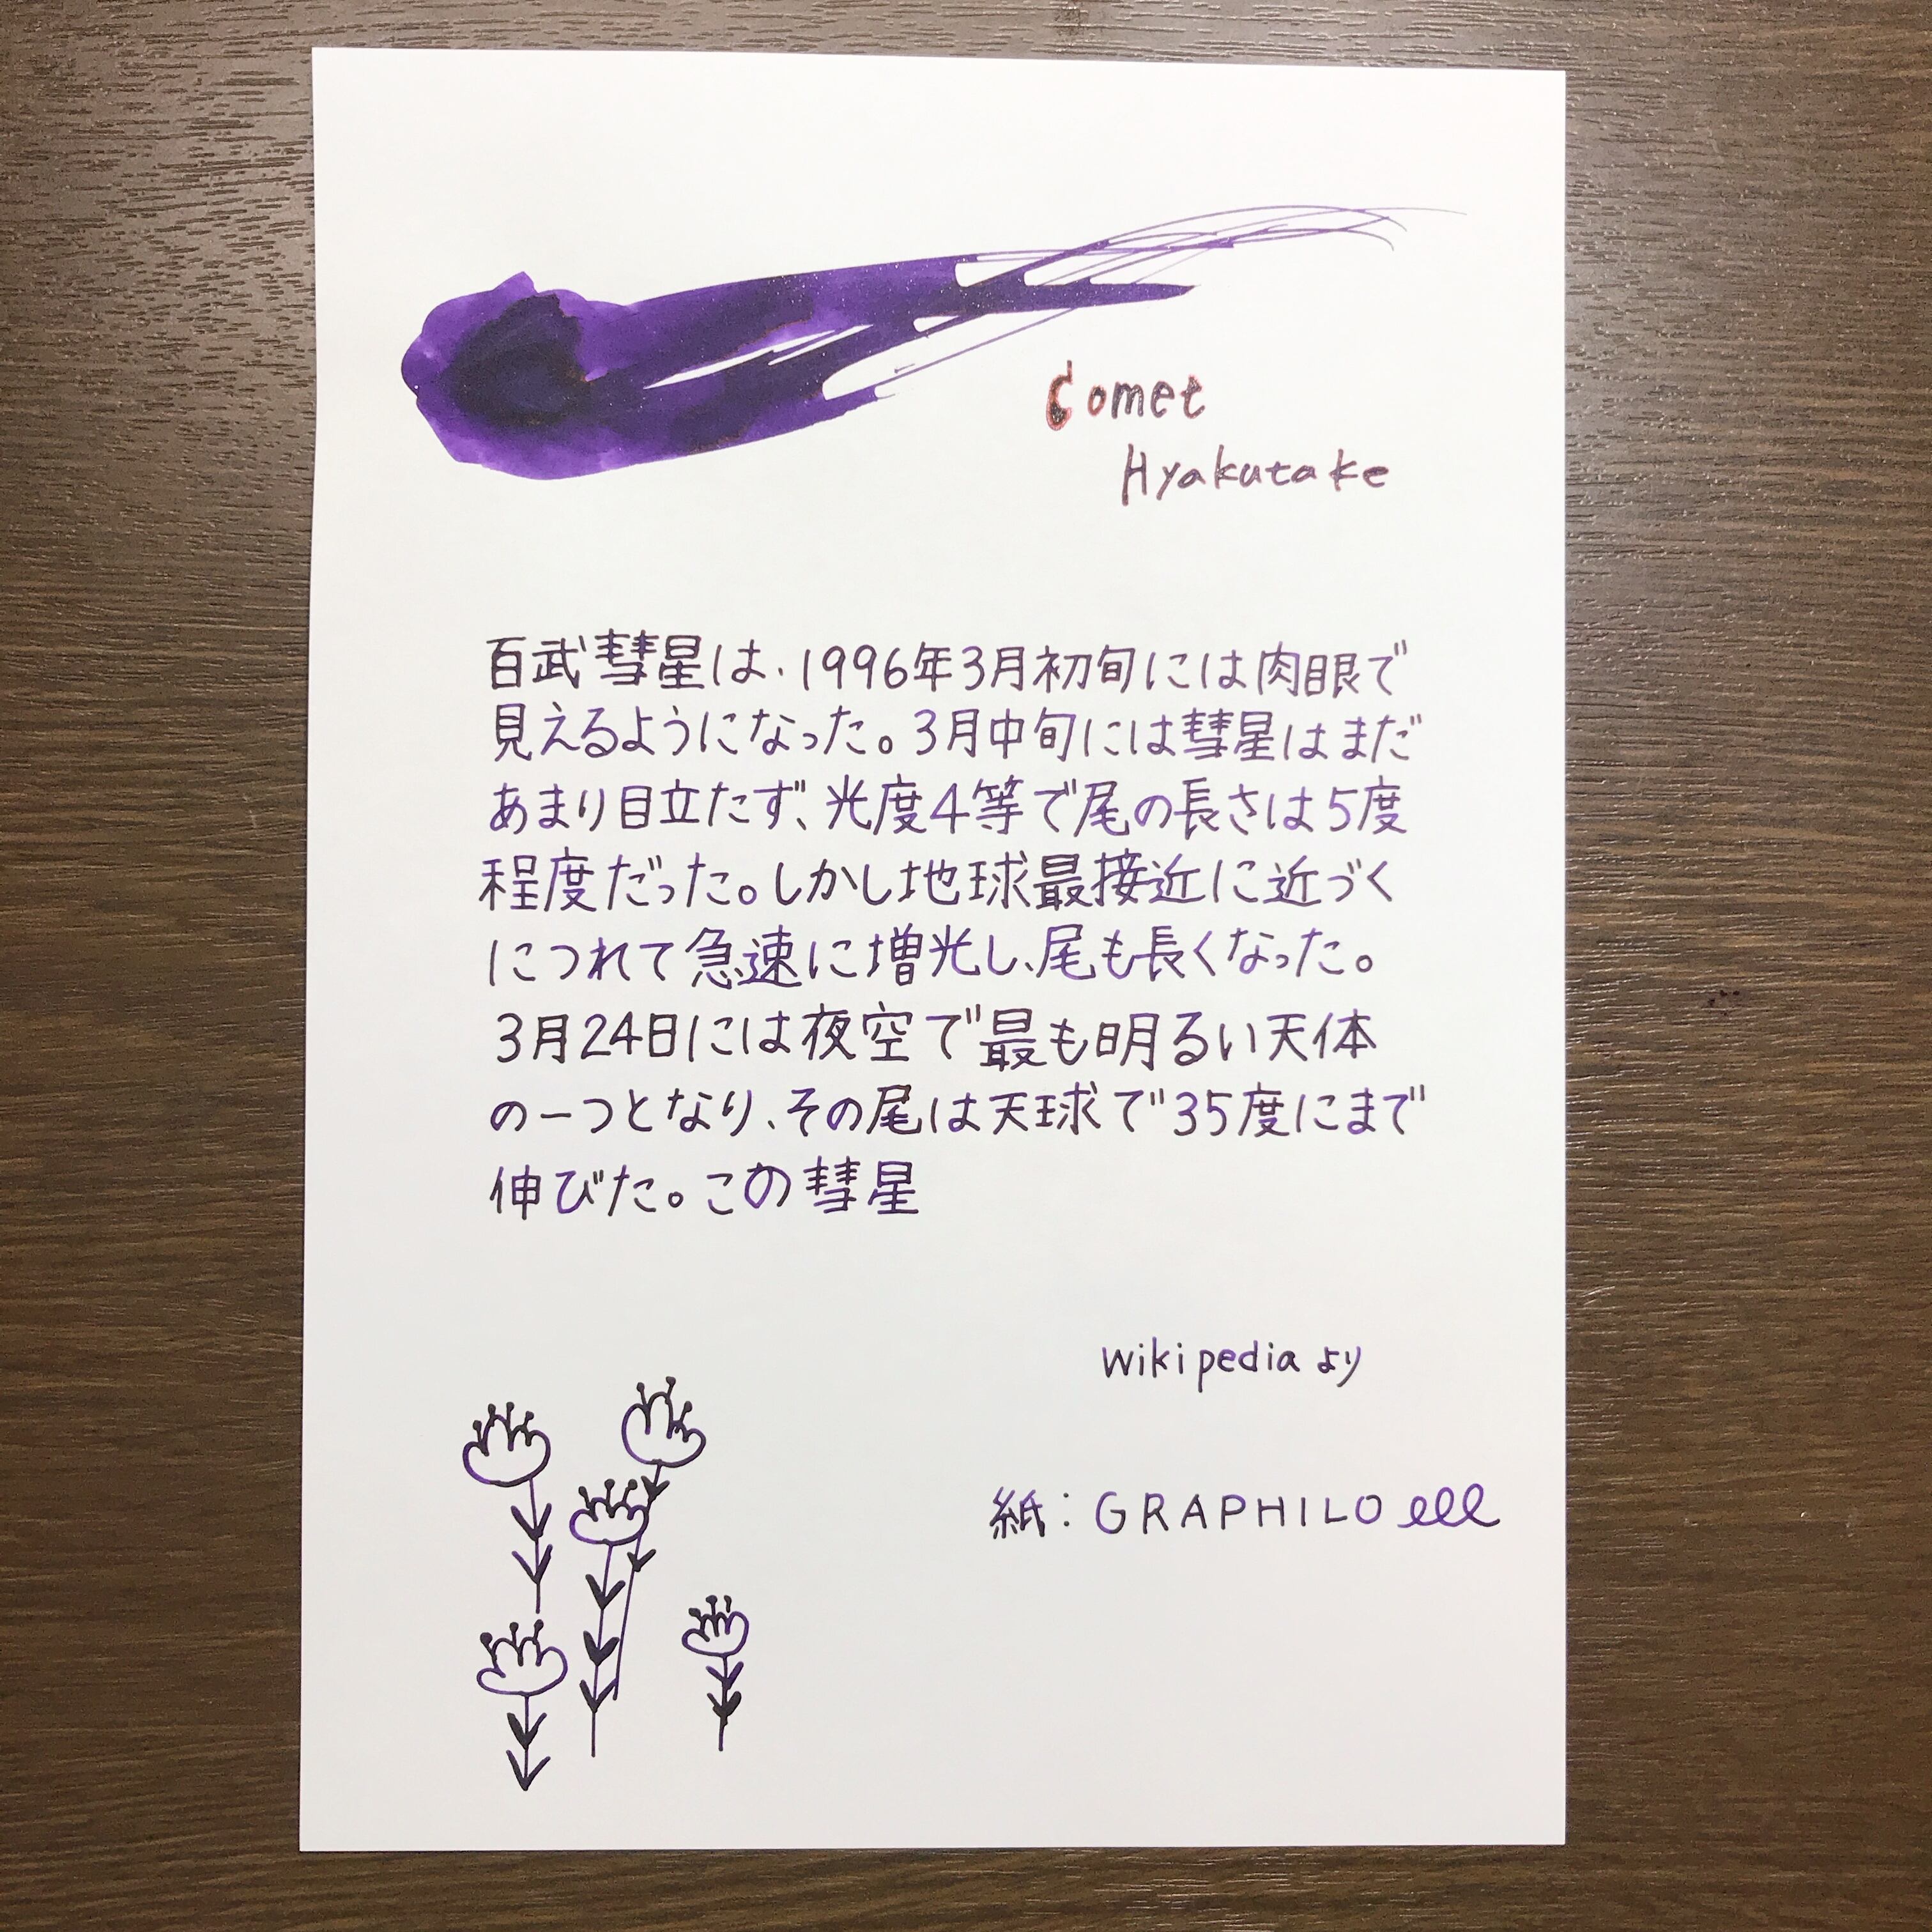 Comet
Hyakutake
百武彗星は、1996年3月初旬には肉眼で
見えるようになった。3月中旬には彗星はまだ
あまり目立たず、光度4等で尾の長さは5度
程度だった。しかし地球最接近に近づく
につれて急速に増光し、尾も長くなった。
3月24日には夜空で最も明るい天体
の一つとなり、その尾は天球で35度にまで
伸びた。この彗星
wikipediaより
紙：GRAPHILO